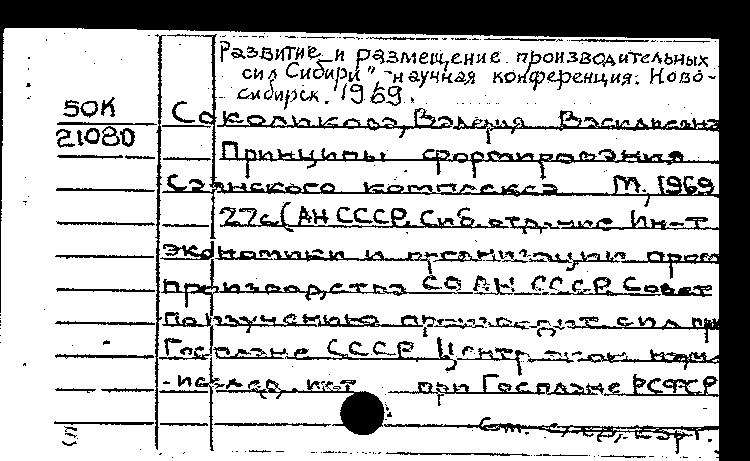 Развитие и размещение производительных
сил Сибири", научная конференция. Ново-
сибирск. 1969.
50К
Соколикова, Валерия Васильевна
21080
Принципы формирования
Саянского комплекса М, 1969
27с (АН СССР. Сиб. отд-ние Ин-т
экономики и организации пром
производства СО АН СССР. Совет
по изучению производит. сил при
Госплане СССР. Центр экон научн
-исслед. инт при Госплане РСФСР
См. след. карт.
5